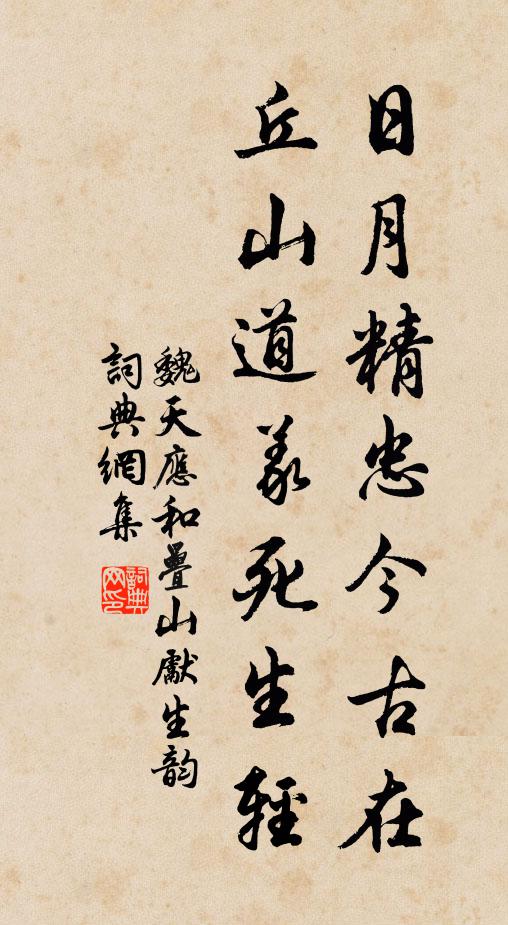 日月精忠今古在
丘山道義死生輕
魏天應和疊山獻生韵
詞典網集
詞典网印